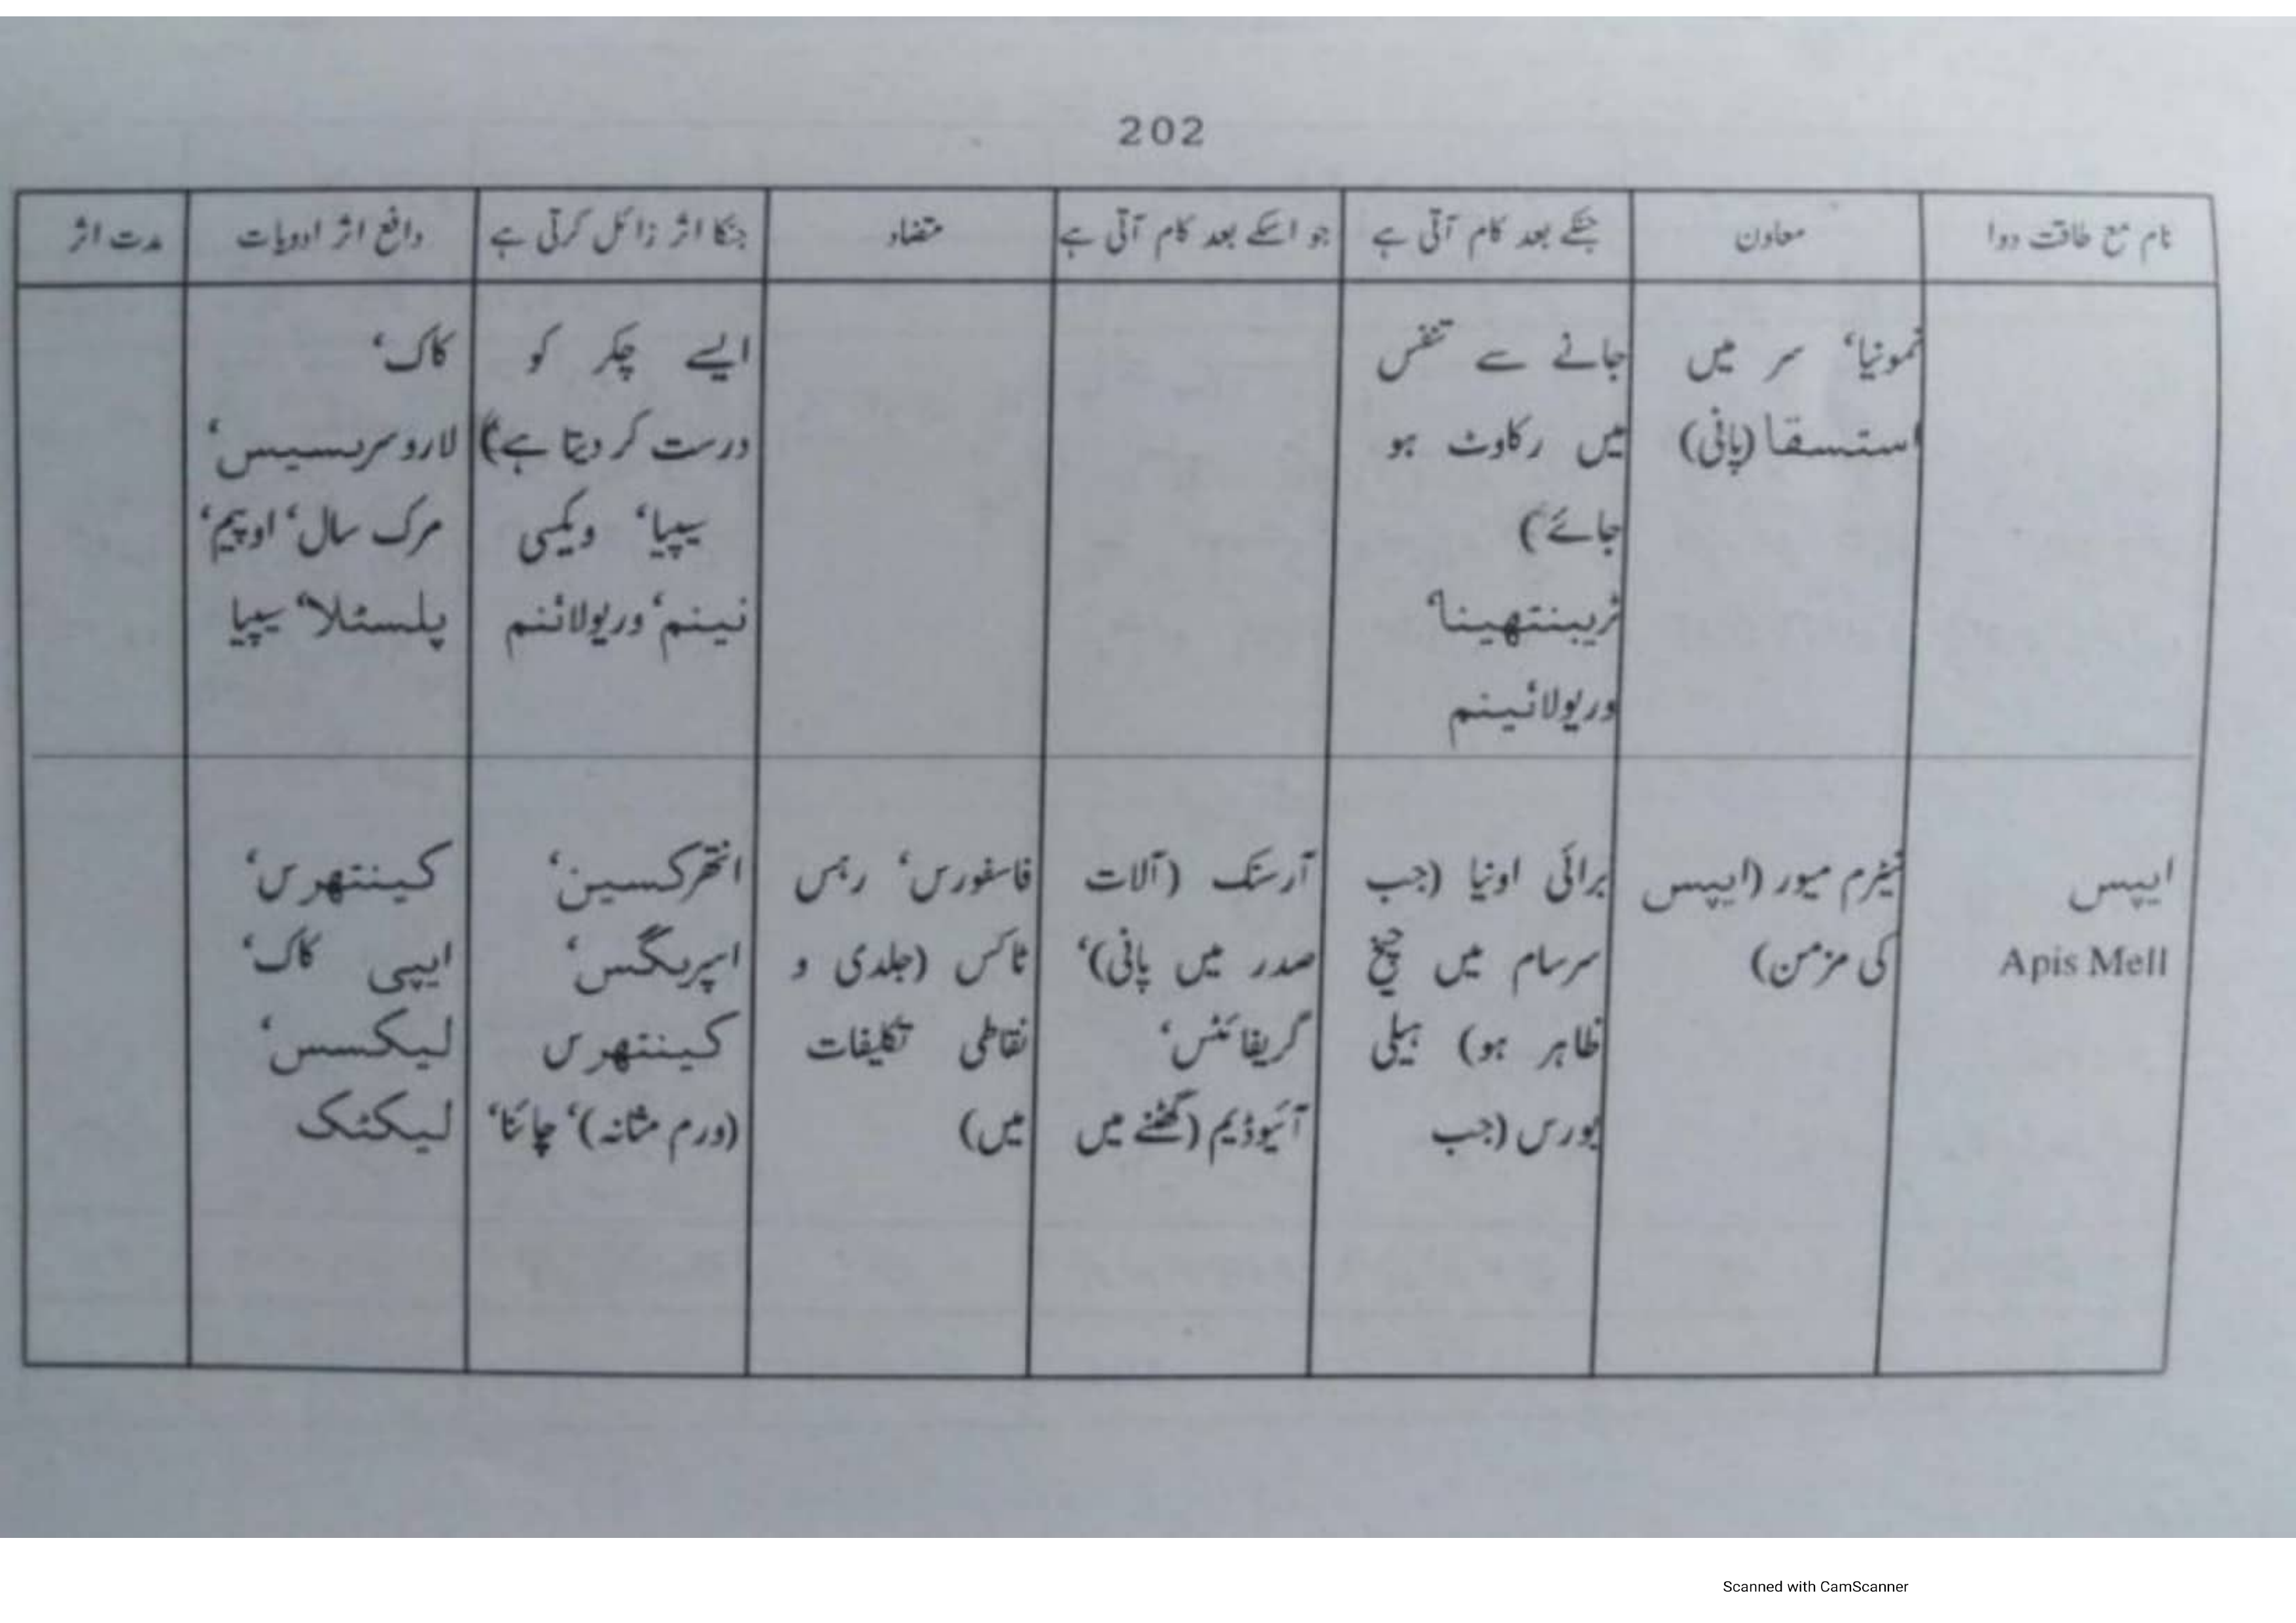 202
نام مع طاقت دوا
معاون
جنکے بعد کام آتی ہے
جو اسکے بعد کام آتی ہے
متضاد
جنکا اثر زائل کرتی ہے
دافع اثر ادویات
مدت اثر
نمونیا، سر میں
استسقا (پانی)
جانے سے تنفس
میں رکاوٹ ہو
جائے)
ٹریبنتھینا،
وریولائینم
ایسے چکر کو
درست کر دیتا ہے)
سیپیا، ویکسی
نینم، وریولائنم
کاک،
لارو سریسیس،
مرک سال، اوپیم،
پلسٹلا، سیپیا
ایپس
Apis Mell
نیٹرم میور (ایپس
کی مزمن)
برائی اونیا (جب
سرسام میں چیخ
ظاہر ہو) ہیلی
بورس (جب
آرسنک (آلات
صدر میں پانی)،
گریفائٹس،
آئیوڈیم (گھٹنے میں
فاسفورس، رہس
ٹاکس (جلدی و
نقاطی تکلیفات
میں)
انتھرکسین،
اسپریگس،
کینتھرس
(ورم مثانہ)، چائنا،
کینتھرس،
ایپی کاک،
لیکسس،
لیکٹک
Scanned with CamScanner